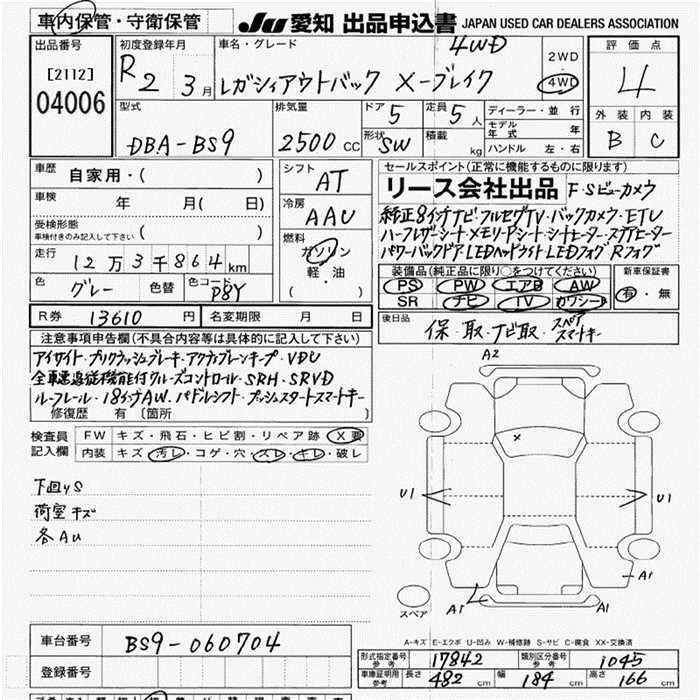 車内保管・守衛保管
JU 愛知 出品申込書 JAPAN USED CAR DEALERS ASSOCIATION
出品番号
[2112]
04006
初度登録年月
R2 3月
車名・グレード
4WD
レガシィアウトバック X-ブレイク
2WD
4WD
評価点
4
外装 内装
B C
型式
DBA-BS9
排気量
2500 CC
ドア 5
形状 SW
定員 5 人
積載 kg
ディーラー・並行
モデル年式 年
ハンドル 左・右
車歴
自家用・( )
車検
年 月( 日)
受検形態
車検付きのみ記入して下さい ( )
走行
12万3千864km
色
グレー
色替
色コード
P8Y
シフト
AT
冷房
AAC
燃料
ガソリン
軽・油
( )
セールスポイント(正常に機能するものに限ります)
リース会社出品 F・Sビューカメラ
純正8インチナビ・フルセグTV・バックカメラ・ETC
ハーフレザーシート・メモリーPシート・シートヒーター・ステアヒーター
パワーバックドア・LEDヘッドライト・LEDフォグ・Rフォグ
装備品(純正品に限り○をつけてください)
PS PW エアB AW
SR ナビ TV カワシート
新車保証書
有・無
R券 13610 円
名変期限 月 日
後日品
保・取・ナビ取・スペアスマートキー
注意事項申告欄(不具合内容等は具体的に記入して下さい)
アイサイト・プリクラッシュブレーキ・アクティブレーンキープ・VDC
全車速追従機能付クルーズコントロール・SRH・SRVD
ルーフレール・18インチAW・パドルシフト・プッシュスタートスマートキー
修復歴 有 〔箇所
検査員
記入欄
FW キズ・飛石・ヒビ割・リペア跡 X要
内装 キズ・汚レ・コゲ・穴・スレ・キレ・破レ
下回りS
荷室キズ
各AU
A2
U1
U1
A1
A1
A1
スペア
A-キズ E-エクボ U-凹み W-補修跡 S-サビ C-腐食 XX-交換済
車台番号 BS9-060704
登録番号
形式指定番号 参考 17842
類別区分番号 参考 1045
車庫証明用 参考 長さ 482 cm 幅 184 cm 高さ 166 cm